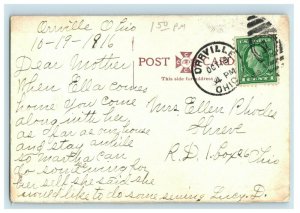 Orrville Ohio
10-19-1916
1 50 PM
Dear Mother
When Ella comes
home You come
along with her
as far as our house
and stay awhile
so Martha can
do something for
her self she said she
would like to do some sewing Lucy. D.
POST CARD
This side for address
ORRVILLE
OCT 19
PM
OHIO
Mrs Ellen Rhodes
Shreve
R.D. 1 Box 26 Ohio